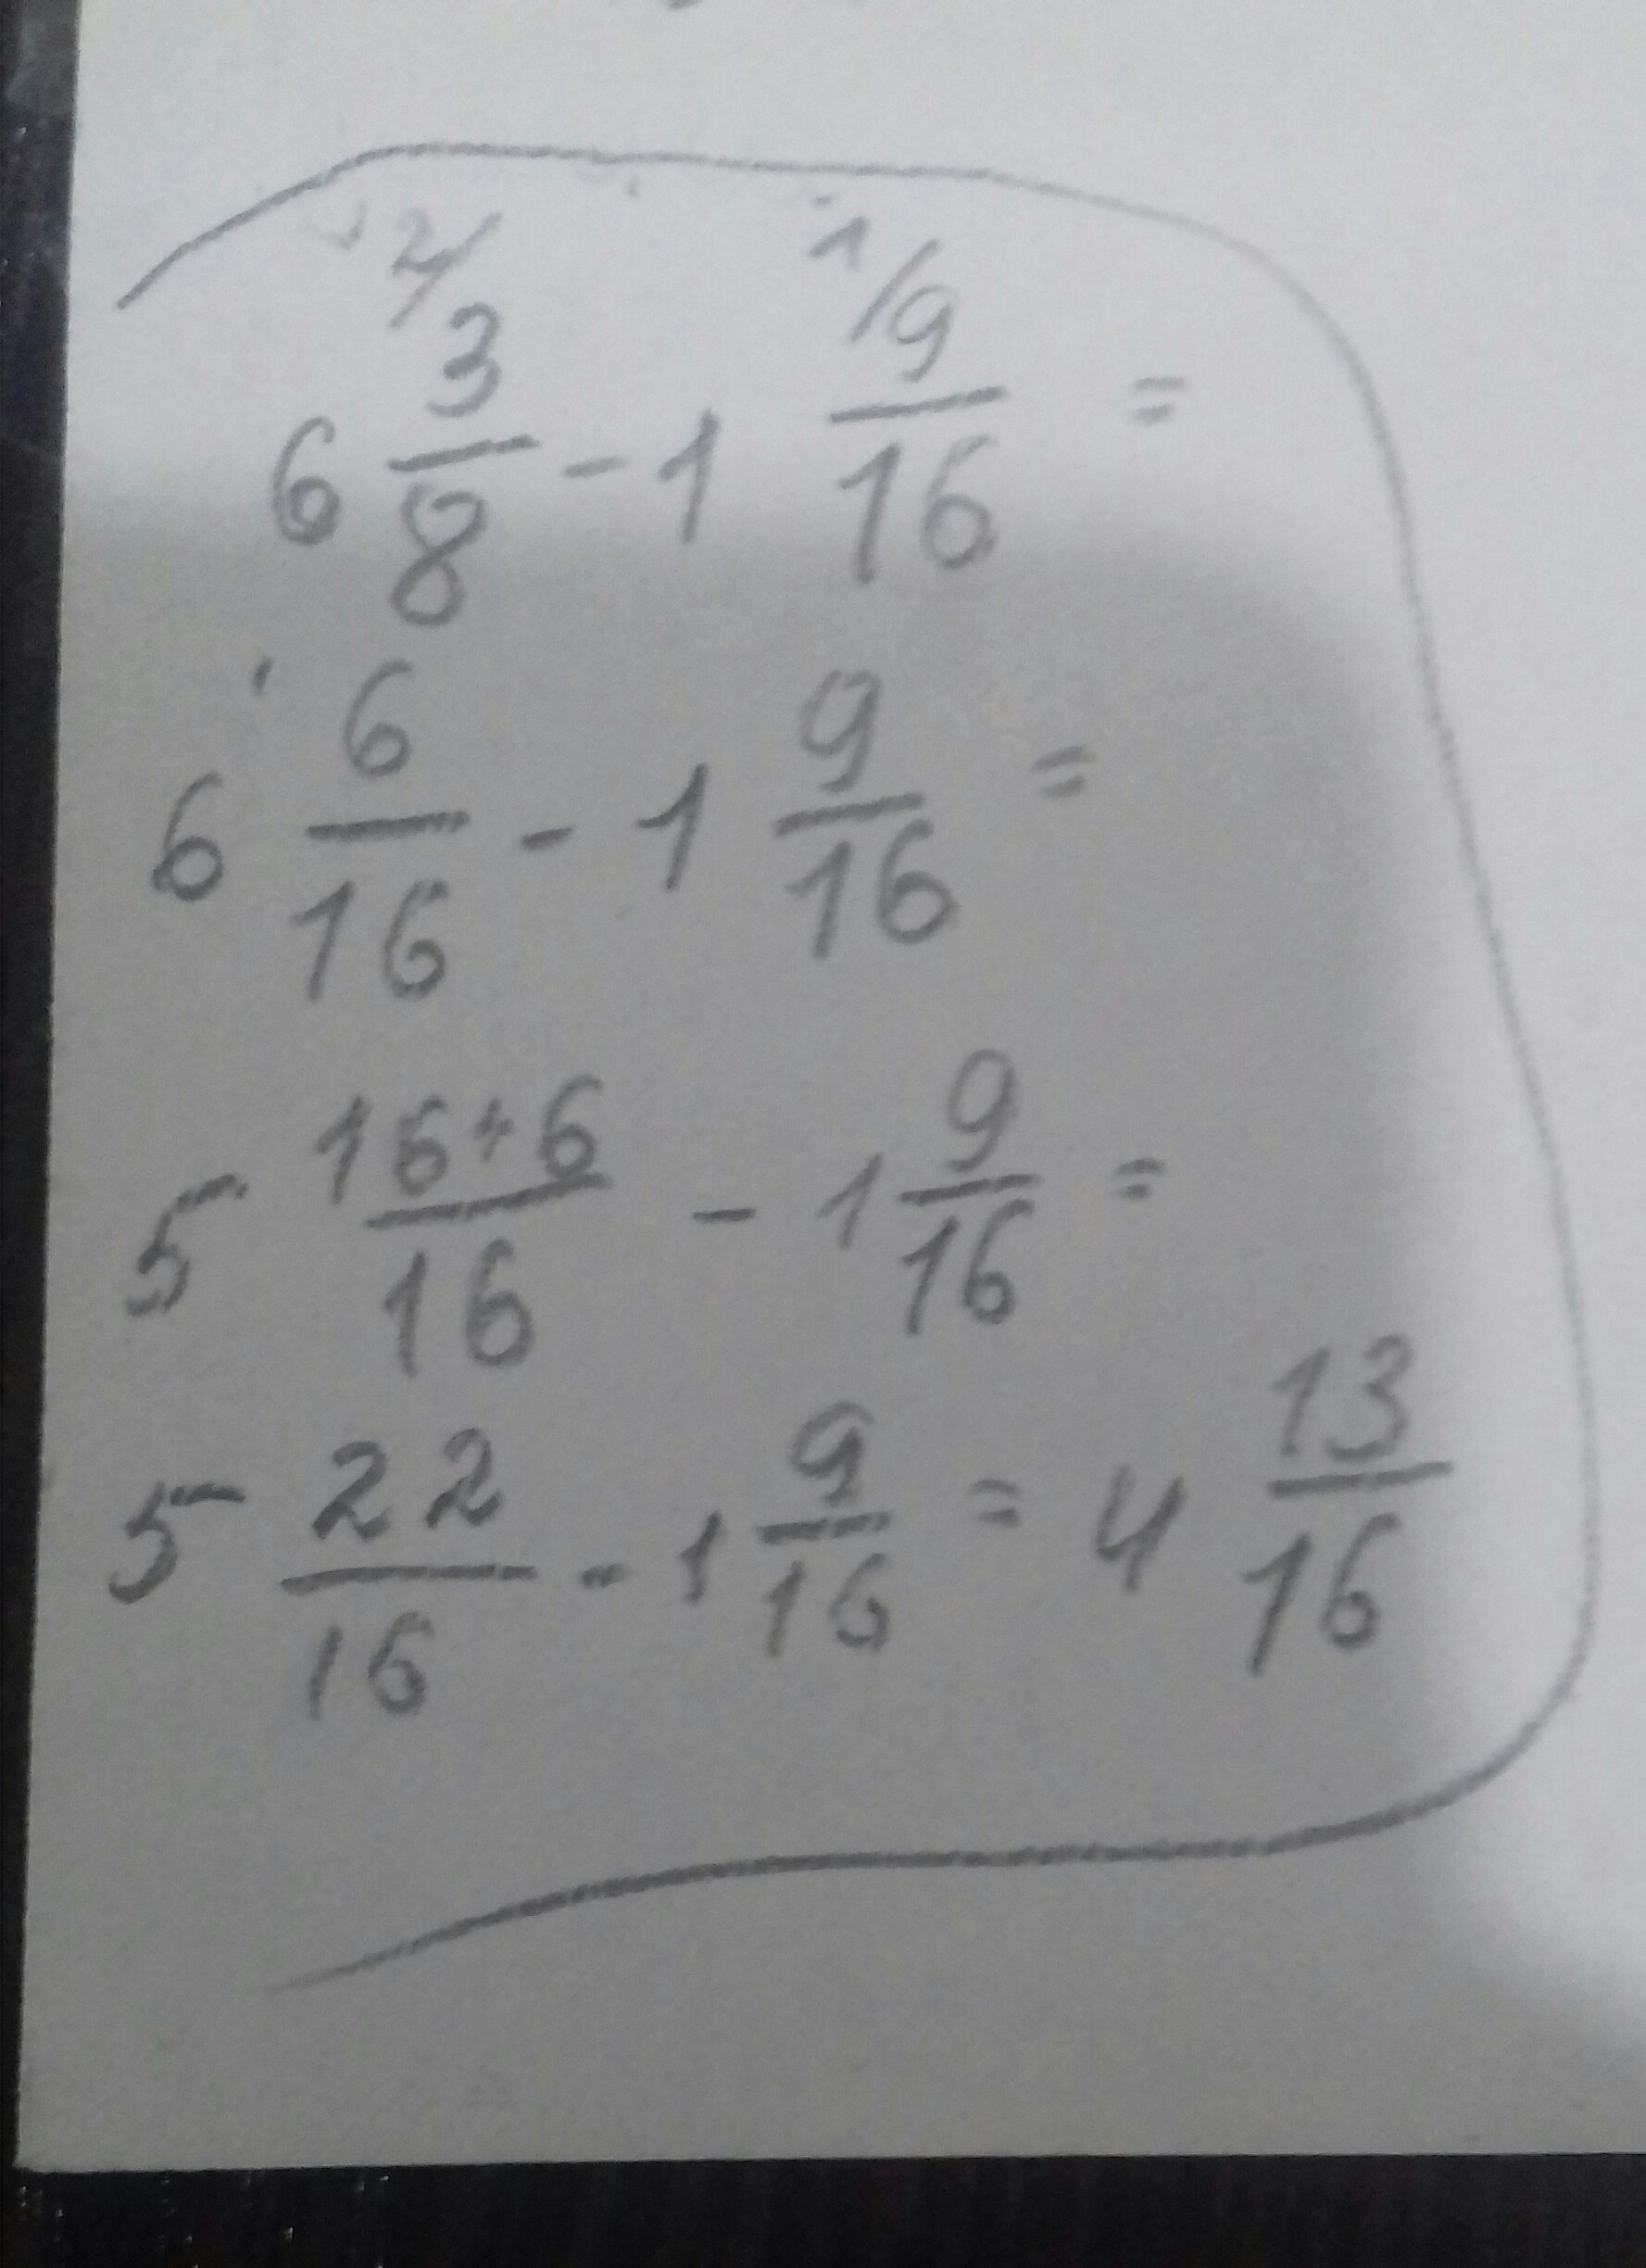 2/ 1/
6 3/8 - 1 9/16 =
6 6/16 - 1 9/16 =
5 16+6/16 - 1 9/16 =
5 22/16 - 1 9/16 = 4 13/16